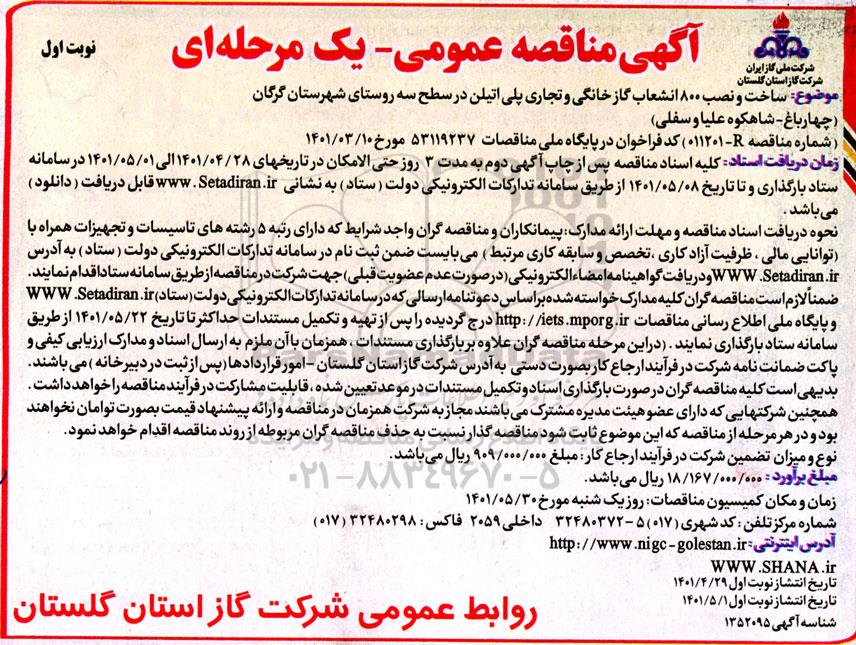 آگهی مناقصه عمومی- یک مرحله‌ای
نوبت اول
شرکت ملی گاز ایران
شرکت گاز استان گلستان
موضوع: ساخت و نصب ۸۰۰ انشعاب گاز خانگی و تجاری پلی اتیلن در سطح سه روستای شهرستان گرگان
(چهارباغ-شاهکوه علیا و سفلی)
(شماره مناقصه R-۰۱۱۲۰۱) کد فراخوان در پایگاه ملی مناقصات ۵۳۱۱۹۲۳۷ مورخ ۱۴۰۱/۰۳/۱۰
زمان دریافت اسناد: کلیه اسناد مناقصه پس از چاپ آگهی دوم به مدت ۳ روز حتی الامکان در تاریخهای ۱۴۰۱/۰۴/۲۸ الی ۱۴۰۱/۰۵/۰۱ در سامانه
ستاد بارگذاری و تا تاریخ ۱۴۰۱/۰۵/۰۸ از طریق سامانه تدارکات الکترونیکی دولت (ستاد) به نشانی www.Setadiran.ir قابل دریافت (دانلود)
می‌باشد.
نحوه دریافت اسناد مناقصه و مهلت ارائه مدارک: پیمانکاران و مناقصه گران واجد شرایط که دارای رتبه ۵ رشته های تاسیسات و تجهیزات همراه با
(توانایی مالی، ظرفیت آزاد کاری، تخصص و سابقه کاری مرتبط) می‌بایست ضمن ثبت نام در سامانه تدارکات الکترونیکی دولت (ستاد) به آدرس
WWW.Setadiran.ir و دریافت گواهینامه امضاء الکترونیکی (در صورت عدم عضویت قبلی) جهت شرکت در مناقصه از طریق سامانه ستاد اقدام نمایند.
ضمناً لازم است مناقصه گران کلیه مدارک خواسته شده بر اساس دعوتنامه ارسالی که در سامانه تدارکات الکترونیکی دولت (ستاد) WWW.Setadiran.ir
و پایگاه ملی اطلاع رسانی مناقصات http://iets.mporg.ir درج گردیده را پس از تهیه و تکمیل مستندات حداکثر تا تاریخ ۱۴۰۱/۰۵/۲۲ از طریق
سامانه ستاد بارگذاری نمایند. (در این مرحله مناقصه گران علاوه بر بارگذاری مستندات، همزمان با آن ملزم به ارسال اسناد و مدارک ارزیابی کیفی و
پاکت ضمانت نامه شرکت در فرآیند ارجاع کار بصورت دستی به آدرس شرکت گاز استان گلستان –امور قراردادها (پس از ثبت در دبیرخانه) می‌باشند.
بدیهی است کلیه مناقصه گران در صورت بارگذاری اسناد و تکمیل مستندات در موعد تعیین شده، قابلیت مشارکت در فرآیند مناقصه را خواهد داشت.
همچنین شرکتهایی که دارای عضو هیئت مدیره مشترک می‌باشند مجاز به شرکت همزمان در مناقصه و ارائه پیشنهاد قیمت بصورت توامان نخواهند
بود و در هر مرحله از مناقصه که این موضوع ثابت شود مناقصه گذار نسبت به حذف مناقصه گران مربوطه از روند مناقصه اقدام خواهد نمود.
نوع و میزان تضمین شرکت در فرآیند ارجاع کار: مبلغ ۹۰۹/۰۰۰/۰۰۰ ریال می‌باشد.
مبلغ برآورد: ۱۸/۱۶۷/۰۰۰/۰۰۰ ریال می‌باشد.
زمان و مکان کمیسیون مناقصات: روز یک شنبه مورخ ۱۴۰۱/۰۵/۳۰
شماره مرکز تلفن: کد شهری (۰۱۷) ۵-۳۲۴۸۰۳۷۲ داخلی ۲۰۵۹ فاکس: ۳۲۴۸۰۲۹۸ (۰۱۷)
آدرس اینترنتی: http://www.nigc-golestan.ir
WWW.SHANA.ir
تاریخ انتشار نوبت اول ۱۴۰۱/۴/۲۹
تاریخ انتشار نوبت اول ۱۴۰۱/۵/۱
شناسه آگهی ۱۳۵۲۰۹۵
روابط عمومی شرکت گاز استان گلستان
ParsNamadData
۰۲۱-۸۸۳۴۹۶۷۰-۵